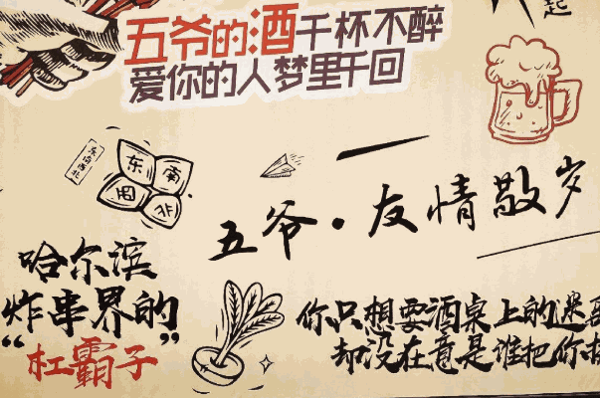 起
五爷的酒千杯不醉
爱你的人梦里千回
东南西北
东
南
西
北
五爷·友情敬岁
哈尔滨
炸串界的
“杠霸子”
你只想要酒桌上的迷
却没在意是谁把你